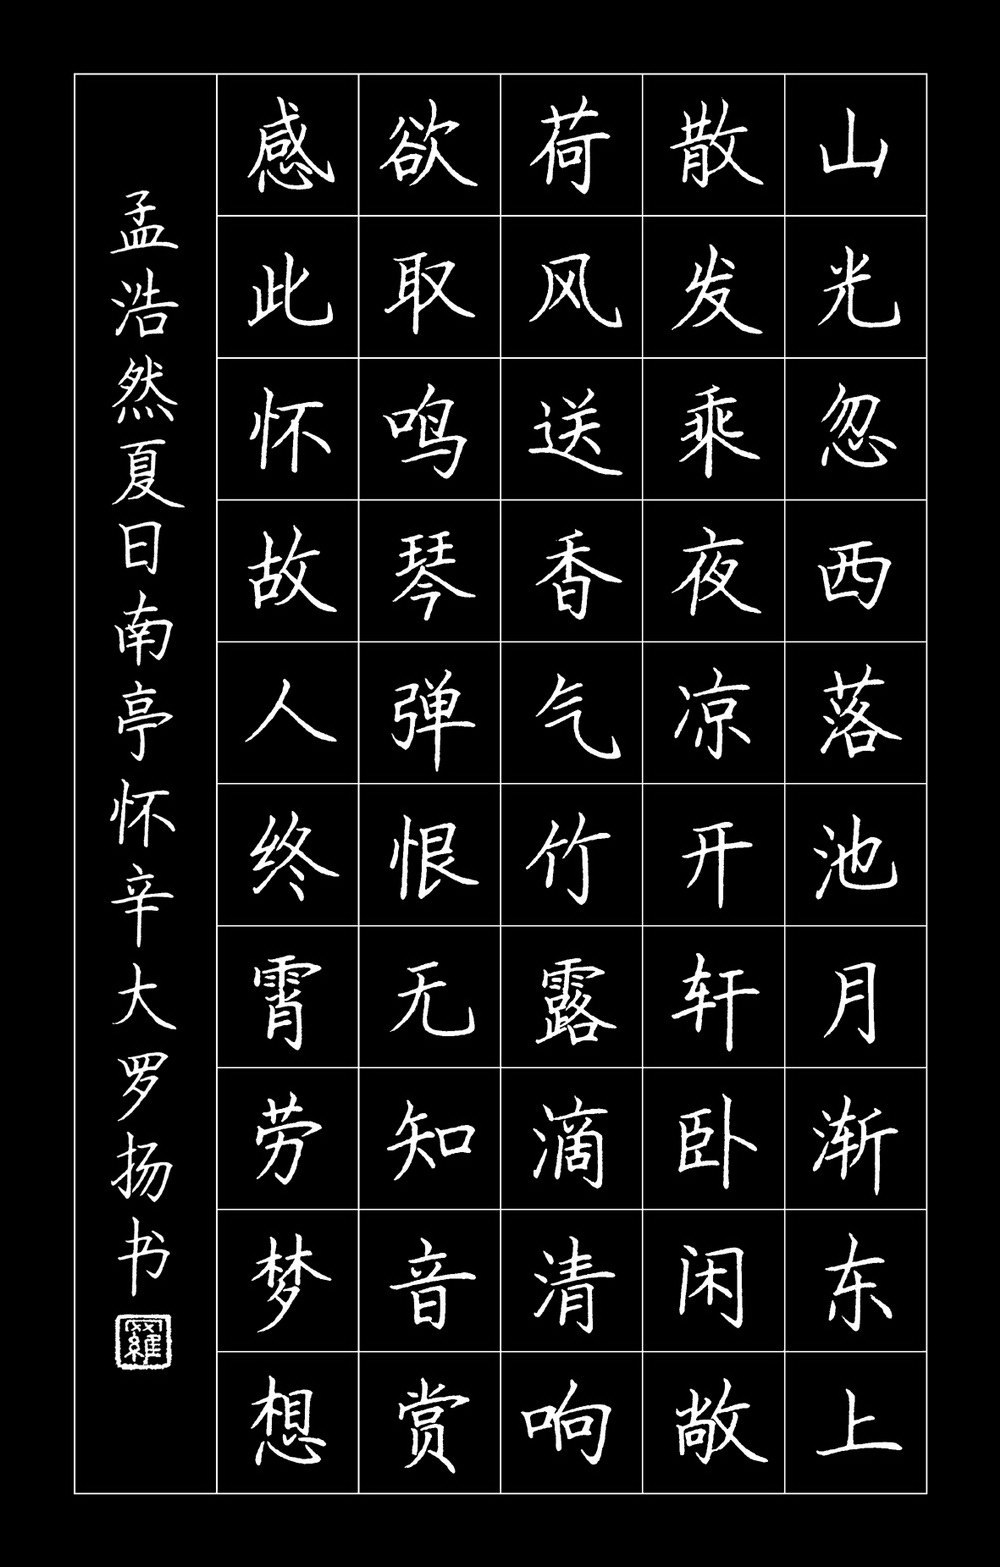 山光忽西落池月渐东上
散发乘夜凉开轩卧闲敞
荷风送香气竹露滴清响
欲取鸣琴弹恨无知音赏
感此怀故人终霄劳梦想
孟浩然夏日南亭怀辛大罗扬书
羅